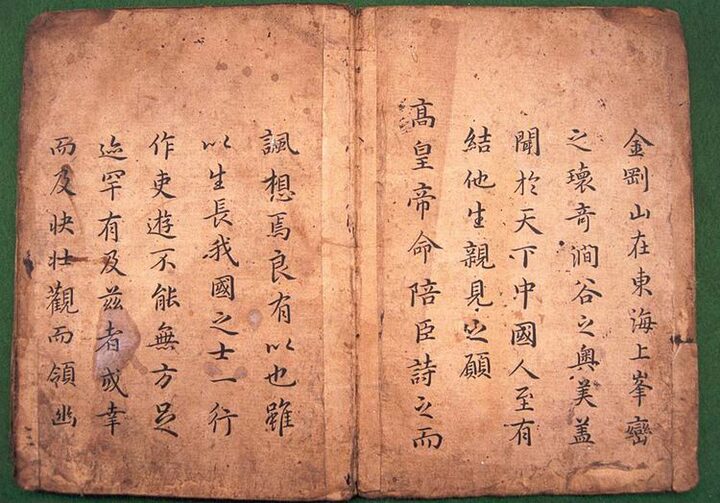 金剛山在東海上峯巒
之瓌竒澗谷之奧美盖
聞於天下中國人至有
結他生親見之願
髙皇帝命陪臣詩之而
諷想焉良有以也雖
以生長我國之士一行
作吏遊不能無方足
迹罕有及玆者或幸
而及快壯觀而領幽